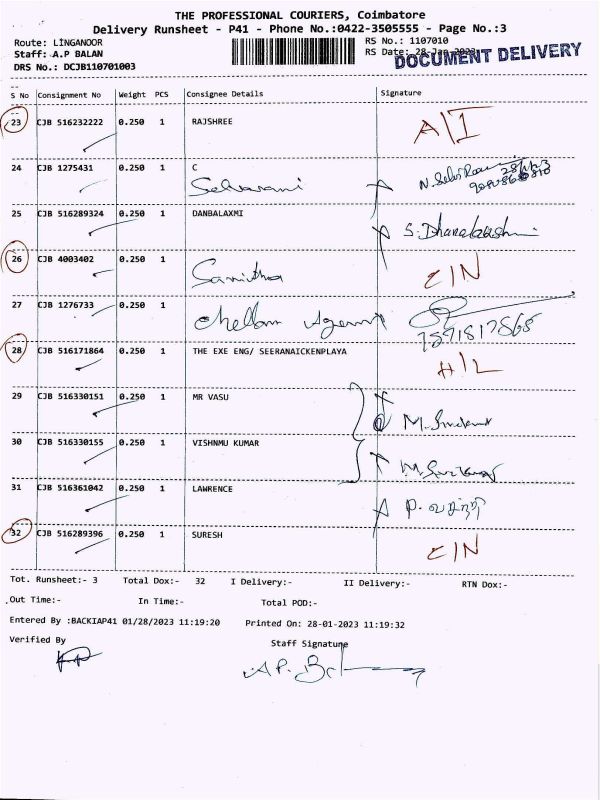 THE PROFESSIONAL COURIERS, Coimbatore
Delivery Runsheet - P41 - Phone No.:0422-3505555 - Page No.:3
Route: LINGANOOR
RS No.: 1107010
Staff: A.P BALAN
RS Date: 28-Jan-2023
DOCUMENT DELIVERY
DRS No.: DCJB110701003
S No Consignment No Weight PCS Consignee Details Signature
23 CJB 516232222 0.250 1 RAJSHREE A/I
24 CJB 1275431 0.250 1 C
Selvarani
25 CJB 516289324 0.250 1 DANBALAXMI S. Dhanalakshmi
26 CJB 4003402 0.250 1
CIN
27 CJB 1276733 0.250 1
Chellam Agency
28 CJB 516171864 0.250 1 THE EXE ENG/ SEERANAICKENPLAYA H/L
29 CJB 516330151 0.250 1 MR VASU
30 CJB 516330155 0.250 1 VISHNMU KUMAR
31 CJB 516361042 0.250 1 LAWRENCE
32 CJB 516289396 0.250 1 SURESH CIN
Tot. Runsheet:- 3 Total Dox:- 32 I Delivery:- II Delivery:- RTN Dox:-
Out Time:- In Time:- Total POD:-
Entered By :BACKIAP41 01/28/2023 11:19:20 Printed On: 28-01-2023 11:19:32
Verified By Staff Signature